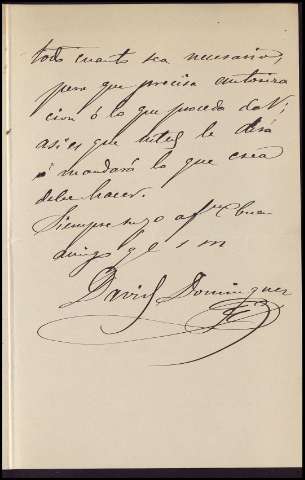 todo cuanto sea necesario,
pero que precisa autoriza
cion ó lo que proceda da V;
asi es que usted le dirá
ó mandará lo que crea
debe hacer.
Siempre suyo aff.mo buen
amigo q b s m
David Dominguez